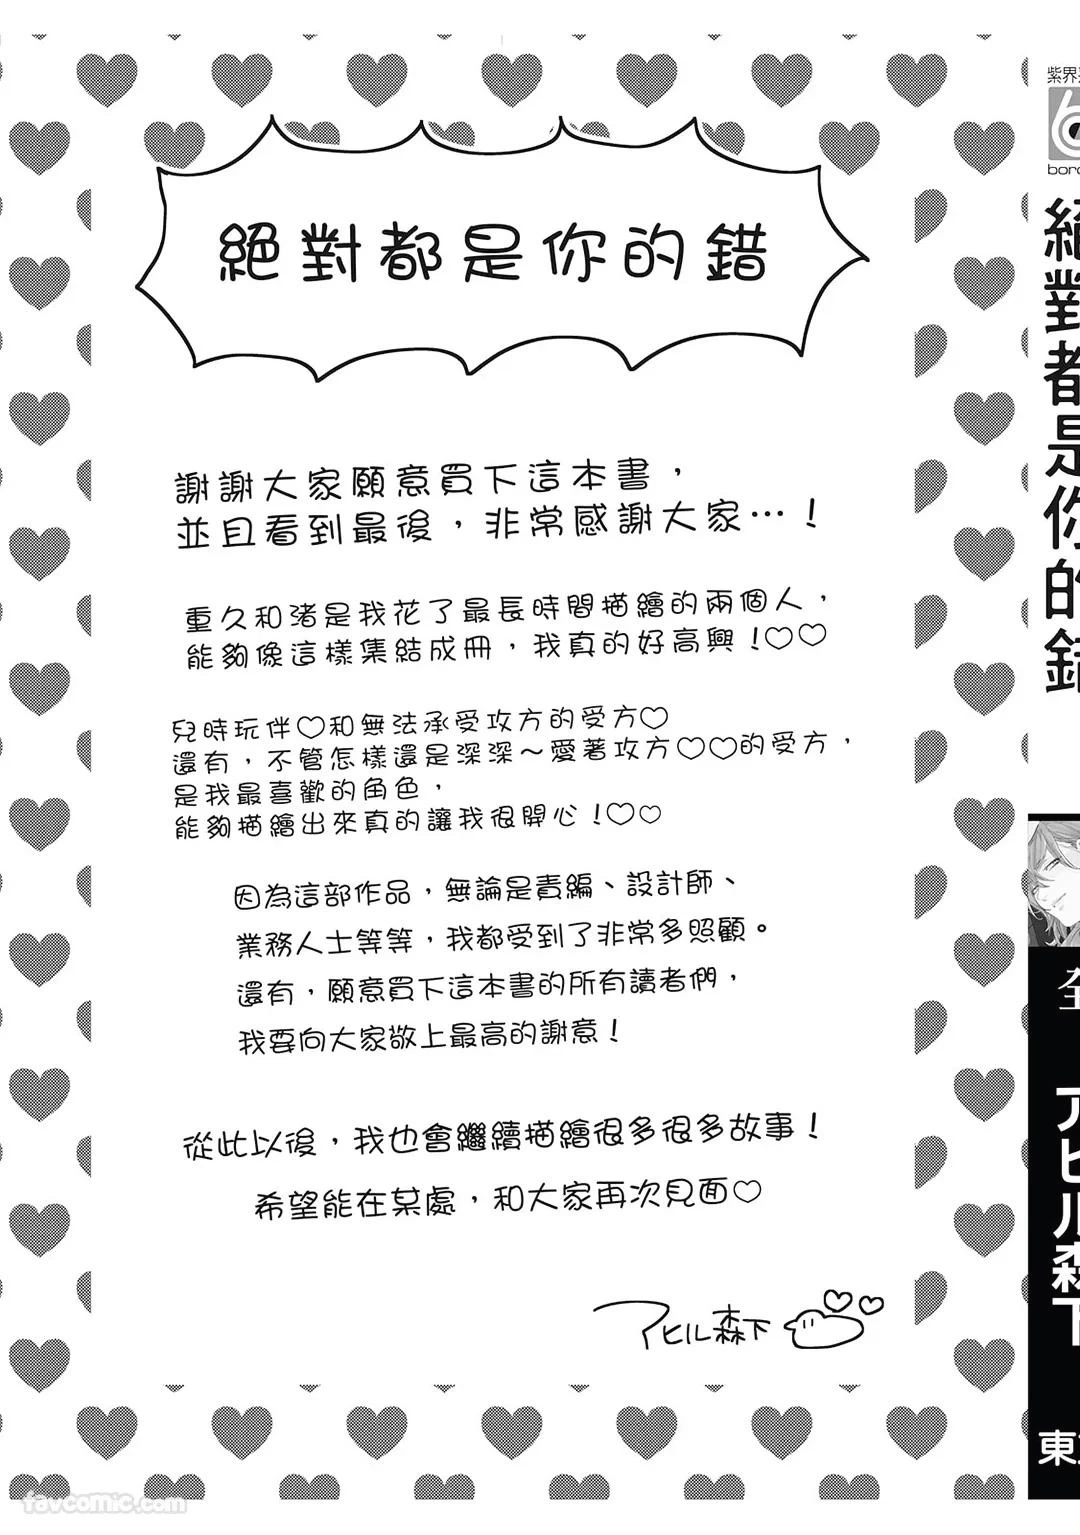 絕對都是你的錯
謝謝大家願意買下這本書，
並且看到最後，非常感謝大家…！
重久和渚是我花了最長時間描繪的兩個人，
能夠像這樣集結成冊，我真的好高興！♡♡
兒時玩伴♡和無法承受攻方的受方♡
還有，不管怎樣還是深深～愛著攻方♡♡的受方，
是我最喜歡的角色，
能夠描繪出來真的讓我很開心！♡♡
因為這部作品，無論是責編、設計師、
業務人士等等，我都受到了非常多照顧。
還有，願意買下這本書的所有讀者們，
我要向大家敬上最高的謝意！
從此以後，我也會繼續描繪很多很多故事！
希望能在某處，和大家再次見面♡
アヒル森下
紫界
絕對都是你的錯
全
アヒル森下
東
favcomic.com